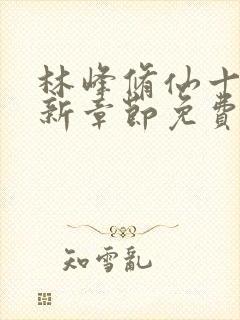 林峰脩仙十
新章節免費
知雪亂